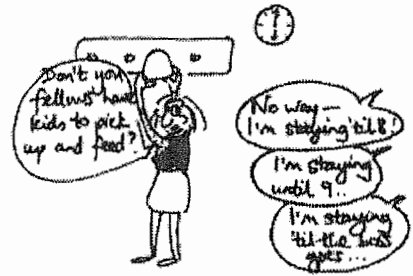 Don't you
fellows have
kids to pick
up and feed?
No way —
I'm staying 'til 8!
I'm staying
until 9..
I'm staying
'til the boss
goes...